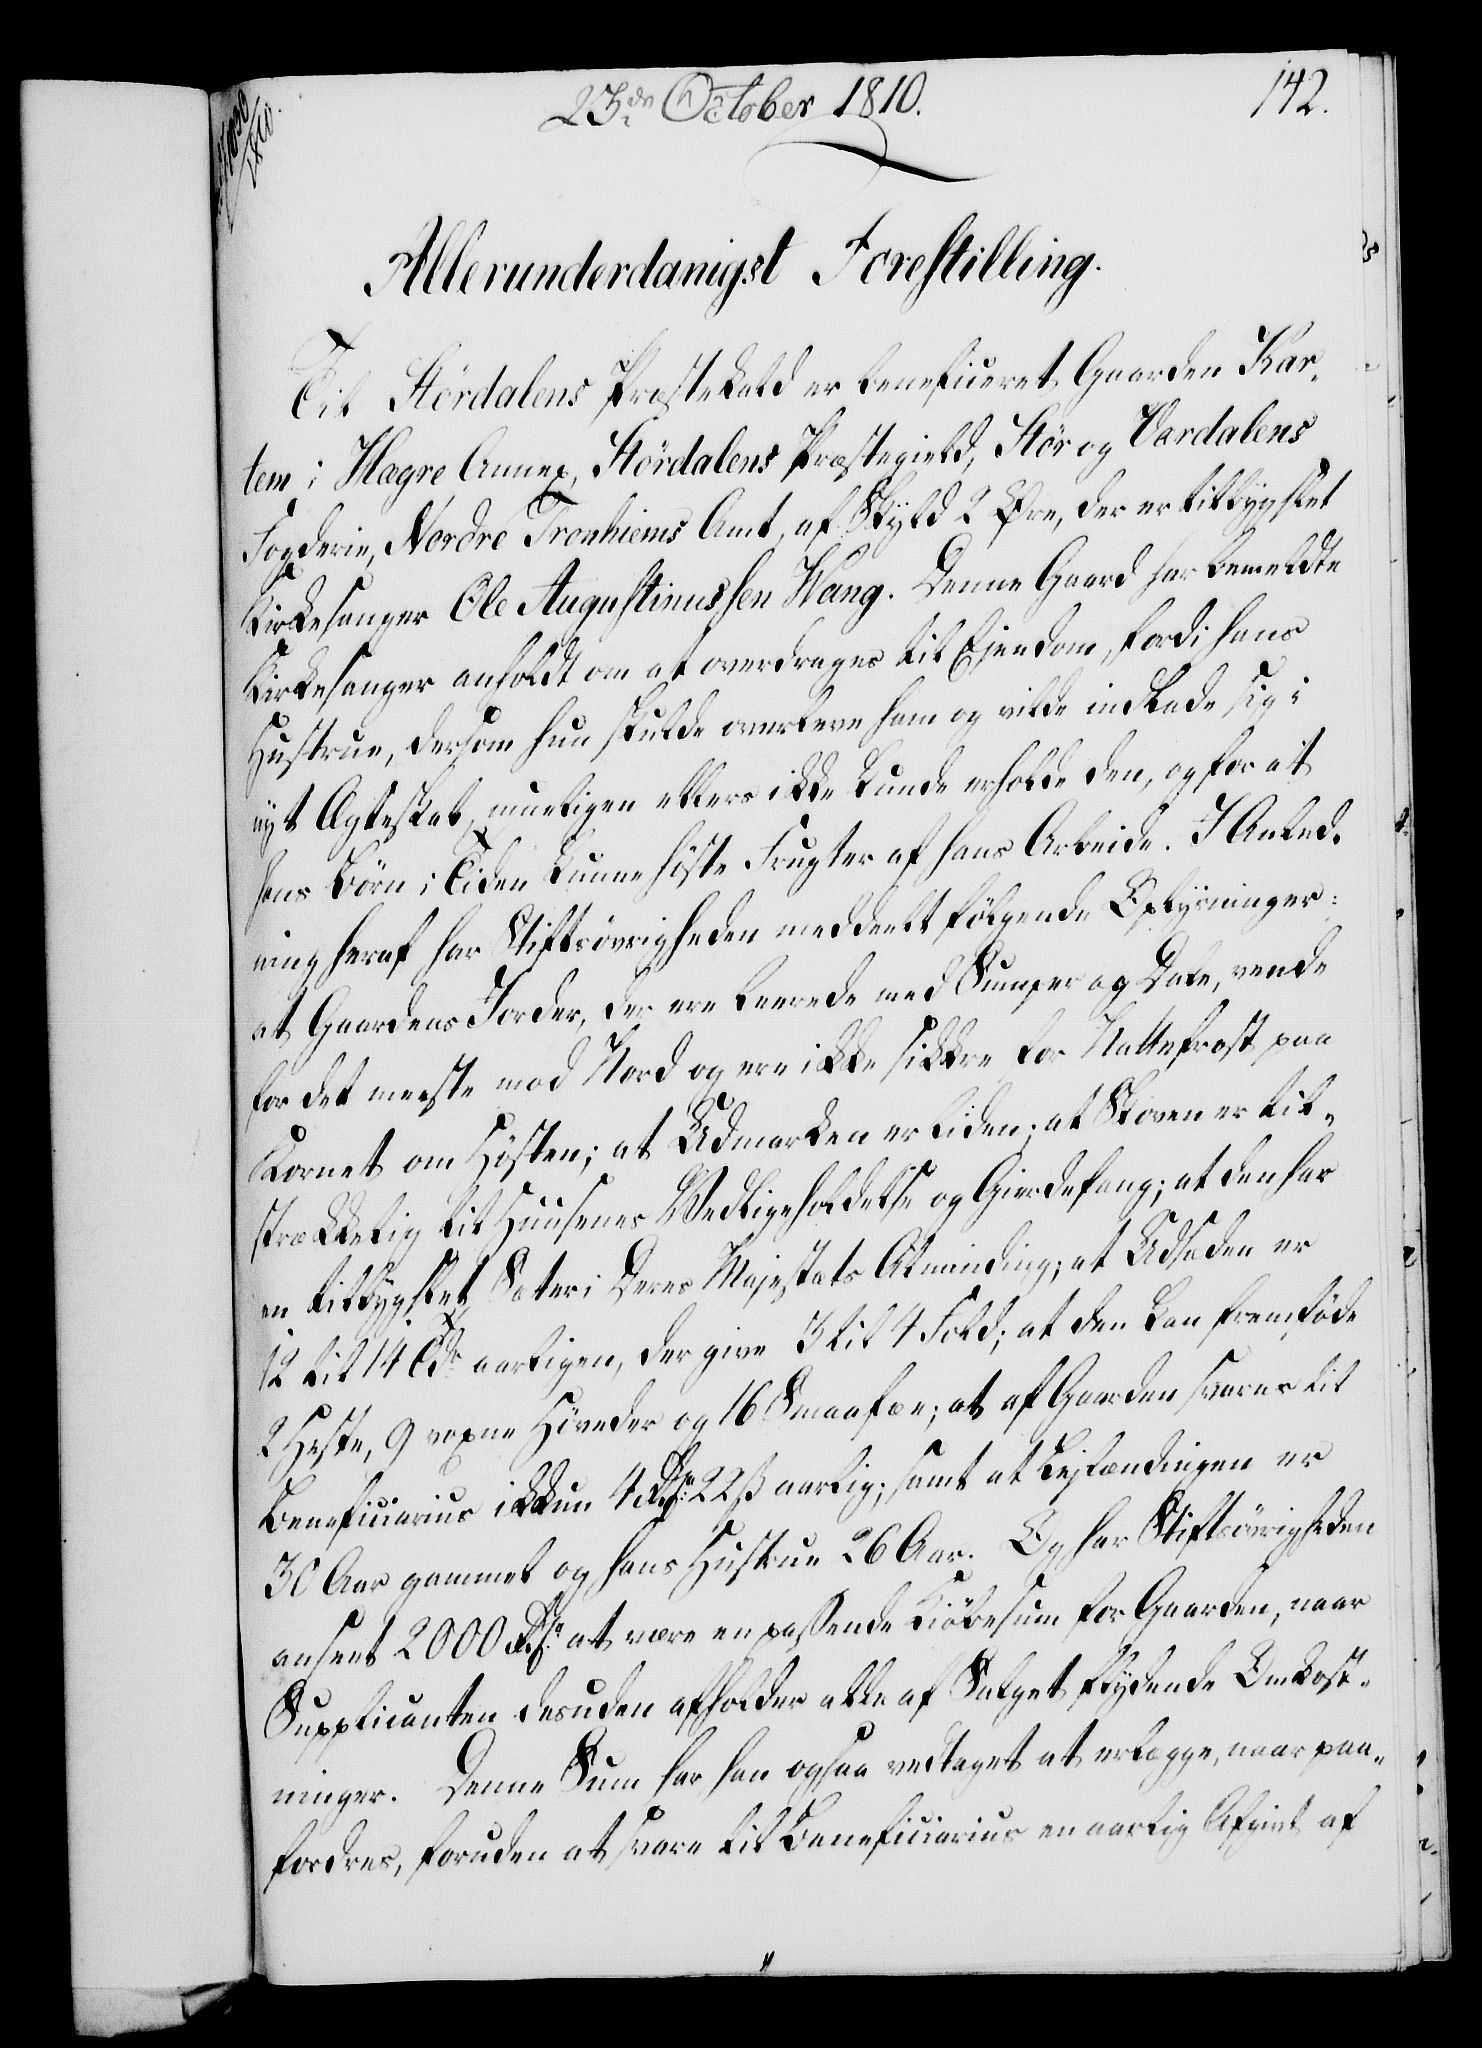 23de October 1810.
142.
1030
1810.
Allerunderdanigst Forestilling.
Til Stördalens Præstekald er beneficeret Gaarden Kar-
tem i Hegre Annex, Stördalens Præstegield, Stör og Værdalens
Fogderie, Nordre Tronhiems Amt, af Skyld 2 Øre, der er tilbygslet
Kirkesanger Ole Augustinussen Wang. Denne Gaard har bemeldte
Kirkesanger anholdt om at overdrages til Ejendom, fordi hans
Hustrue, dersom hun skulde overleve ham og vilde indlade sig i
nyt Ægteskab, mueligen ellers ikke kunde erholde den, og for at
hans Börn i Tiden kunne höste Frugter af hans Arbeide. I Anled-
ning heraf har Stiftsövrigheden meddeelt fölgende Oplysninger:
at Gaardens Jorder, der ere leerede med Sumper og Dale, vende
for det meeste mod Nord og ere ikke sikkre for Nattefrost paa
Kornet om Hösten; at Udmarken er liden; at Skoven er til-
strækkelig til Huusenes Vedligeholdelse og Gierdefang; at den har
en tilbygslet Sæter i Deres Majestæts Alminding; at Udsæden er
12 til 14 Tdr aarligen, der give 3 til 4 Fold; at den kan fremföde
2 Heste, 9 voxne Höveder og 16 Smaafæe; at af Gaarden svares til
Beneficiarius ikkun 4 Rdr. 22 ß aarlig; samt at Leilændingen er
30 Aar gammel og hans Hustrue 26 Aar. Og har Stiftsövrigheden
anseet 2000 Rdr. at være en passende Kiöbesum for Gaarden, naar
Supplicanten desuden afholder alle af Salget flydende Omkost-
ninger. Denne Sum har han ogsaa vedtaget at erlægge, naar paa-
fordres, foruden at svare til Beneficiarius en aarlig Afgivt af